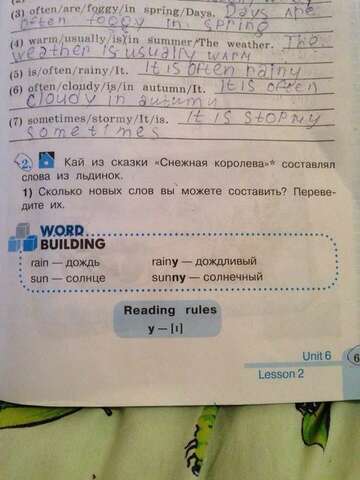 (3) often/are/foggy/in spring/Days. Days are
often foggy in spring
(4) warm/usually/is/in summer/The weather. The
weather is usually warm
(5) is/often/rainy/It. It is often rainy
(6) often/cloudy/is/in autumn/It. It is often
cloudy in autumn
(7) sometimes/stormy/It/is. It is stormy
sometimes
2. Кай из сказки «Снежная королева»* составлял
слова из льдинок.
1) Сколько новых слов вы можете составить? Переве-
дите их.
WORD
BUILDING
rain — дождь rainy — дождливый
sun — солнце sunny — солнечный
Reading rules
y — [ɪ]
Unit 6
Lesson 2